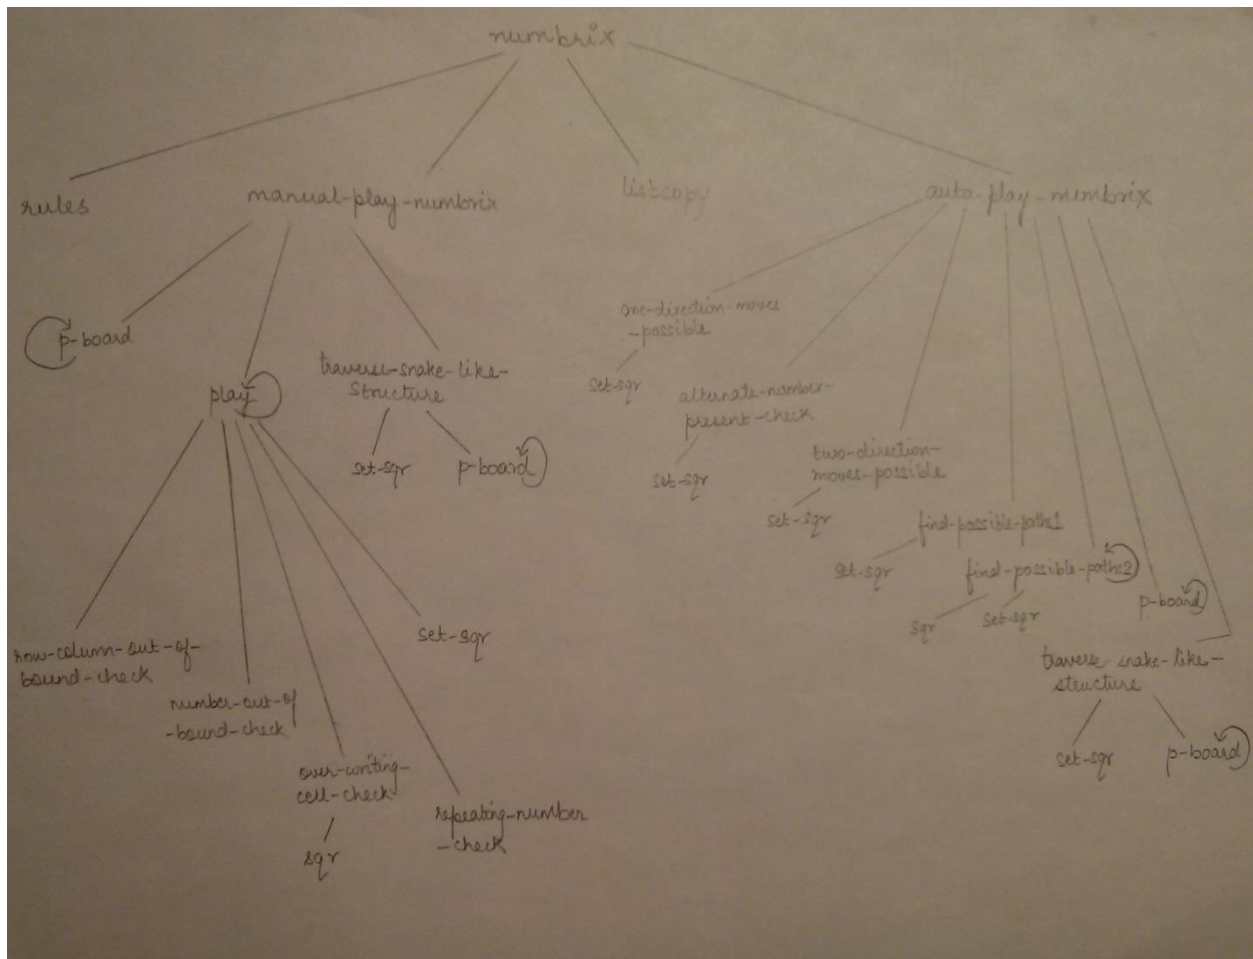 numbrix
rules
manual-play-numbrix
listcopy
auto-play-numbrix
p-board
play
traverse-snake-like-
structure
set-sqr
p-board
row-column-out-of-
bound-check
number-out-of
-bound-check
over-writing-
cell-check
sqr
repeating-number
-check
set-sqr
one-direction-moves
-possible
set-sqr
alternate-number-
present-check
set-sqr
two-direction-
moves-possible
set-sqr
find-possible-paths1
set-sqr
find-possible-paths2
sqr
set-sqr
p-board
traverse-snake-like-
structure
set-sqr
p-board